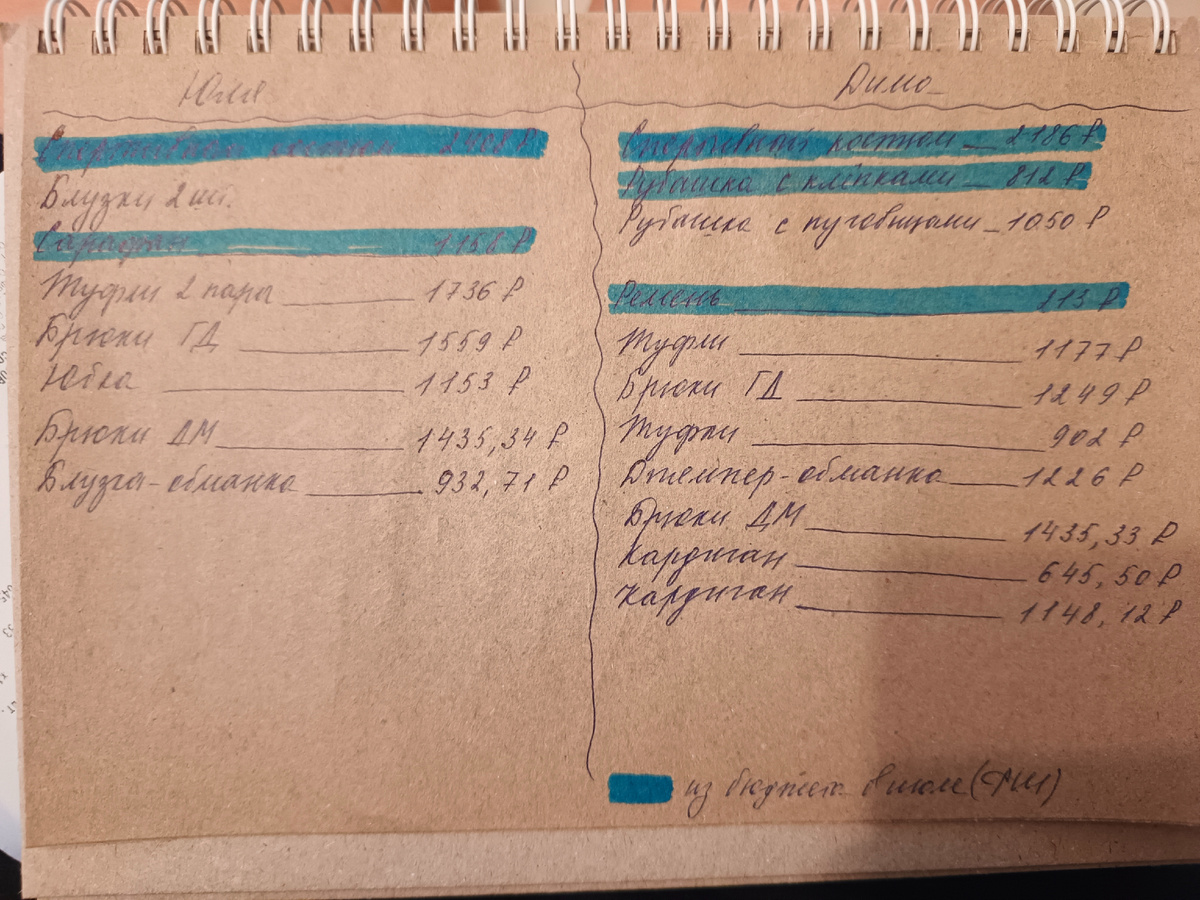 Юля
Спортивный костюм 2408 ₽
Блузки 2 шт.
Сарафан 1158 ₽
Туфли 2 пара 1736 ₽
Брюки ГД 1559 ₽
Юбка 1153 ₽
Брюки ДМ 1435,34 ₽
Блузга-обманка 932,71 ₽
Дима
Спортивный костюм 2186 ₽
Рубашка с кнопками 812 ₽
Рубашка с пуговицами 1050 ₽
Ремень 213 ₽
Туфли 1177 ₽
Брюки ГД 1249 ₽
Туфли 902 ₽
Джемпер-обманка 1226 ₽
Брюки ДМ 1435,33 ₽
Кардиган 645,50 ₽
Кардиган 1148,12 ₽
из бюджета в июле